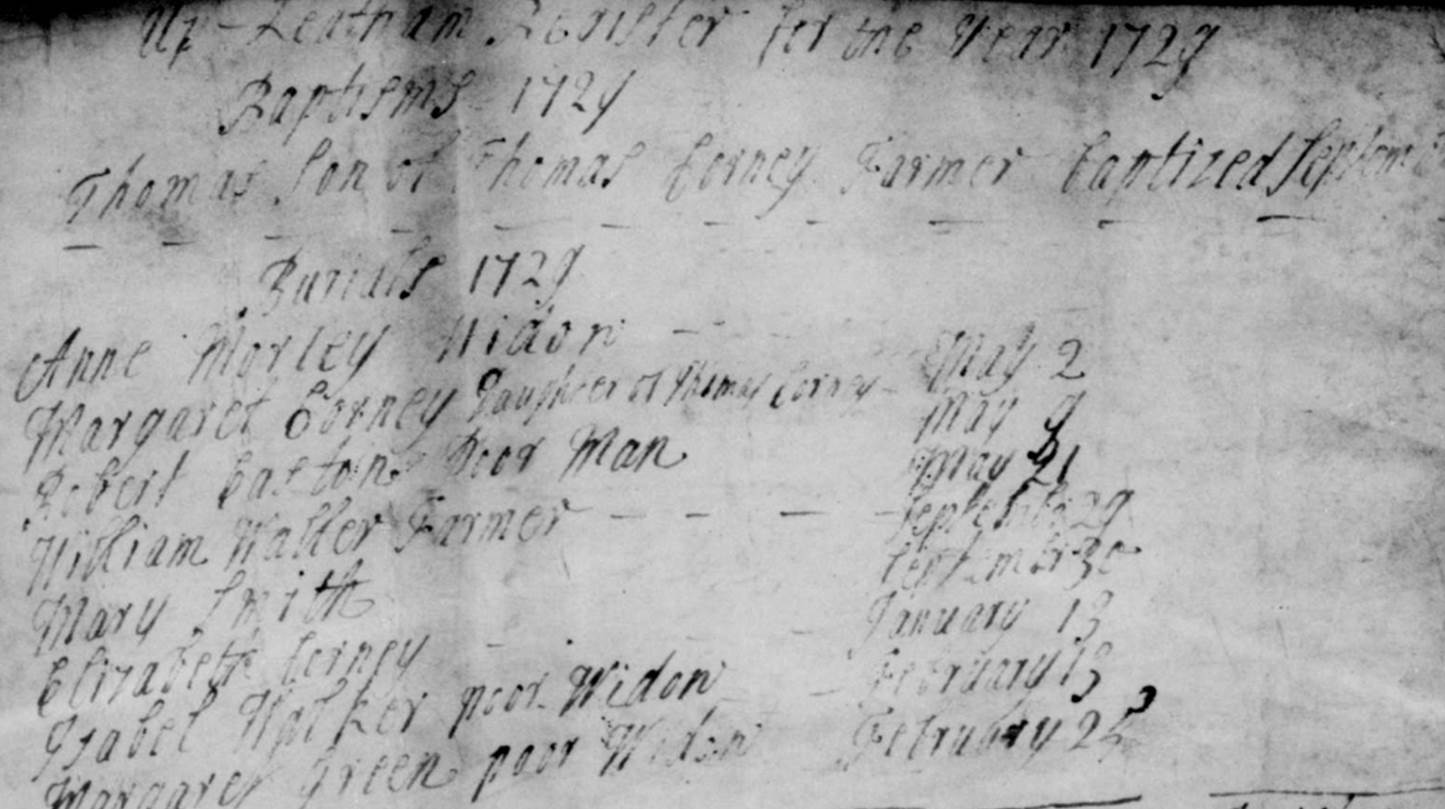 Up-Leatham Register for the Year 1729
Baptisms 1729
Thomas Son of Thomas Corney Farmer baptized Septem
Burials 1729
Anne Morley Widow May 2
Margaret Corney Daughter of Thomas Corney May 9
Robert Easton Poor Man May 21
William Walker Farmer September 29
Mary Smith September 30
Elizabeth Corney January 13
Isabel Walker poor Widow February 13
Margaret Green poor Widow February